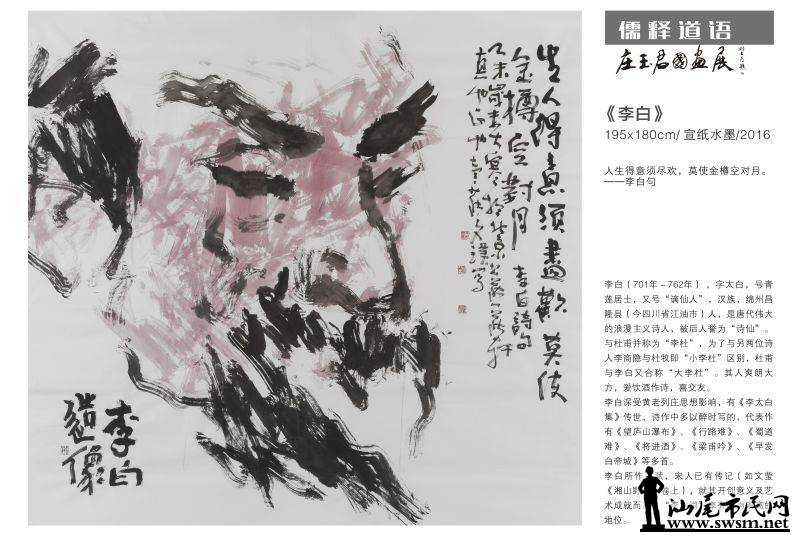 儒释道语
庄玉君國畫展
《李白》
195x180cm/ 宣纸水墨/2016
人生得意须尽欢，莫使金樽空对月。
——李白句
李白（701年－762年），字太白，号青
莲居士，又号“谪仙人”，汉族，绵州昌
隆县（今四川省江油市）人，是唐代伟大
的浪漫主义诗人，被后人誉为“诗仙”。
与杜甫并称为“李杜”，为了与另两位诗
人李商隐与杜牧即“小李杜”区别，杜甫
与李白又合称“大李杜”。其人爽朗大
方，爱饮酒作诗，喜交友。
李白深受黄老列庄思想影响，有《李太白
集》传世，诗作中多以醉时写的，代表作
有《望庐山瀑布》、《行路难》、《蜀道
难》、《将进酒》、《梁甫吟》、《早发
白帝城》等多首。
李白所作
，宋人已有传记（如文莹
《湘山
卷上），就其开创意义及艺
术成就而
地位。
人人得意須盡歡 莫使
金樽空對月 李白詩句
李白
造像
汕尾市民网
www.swsm.net